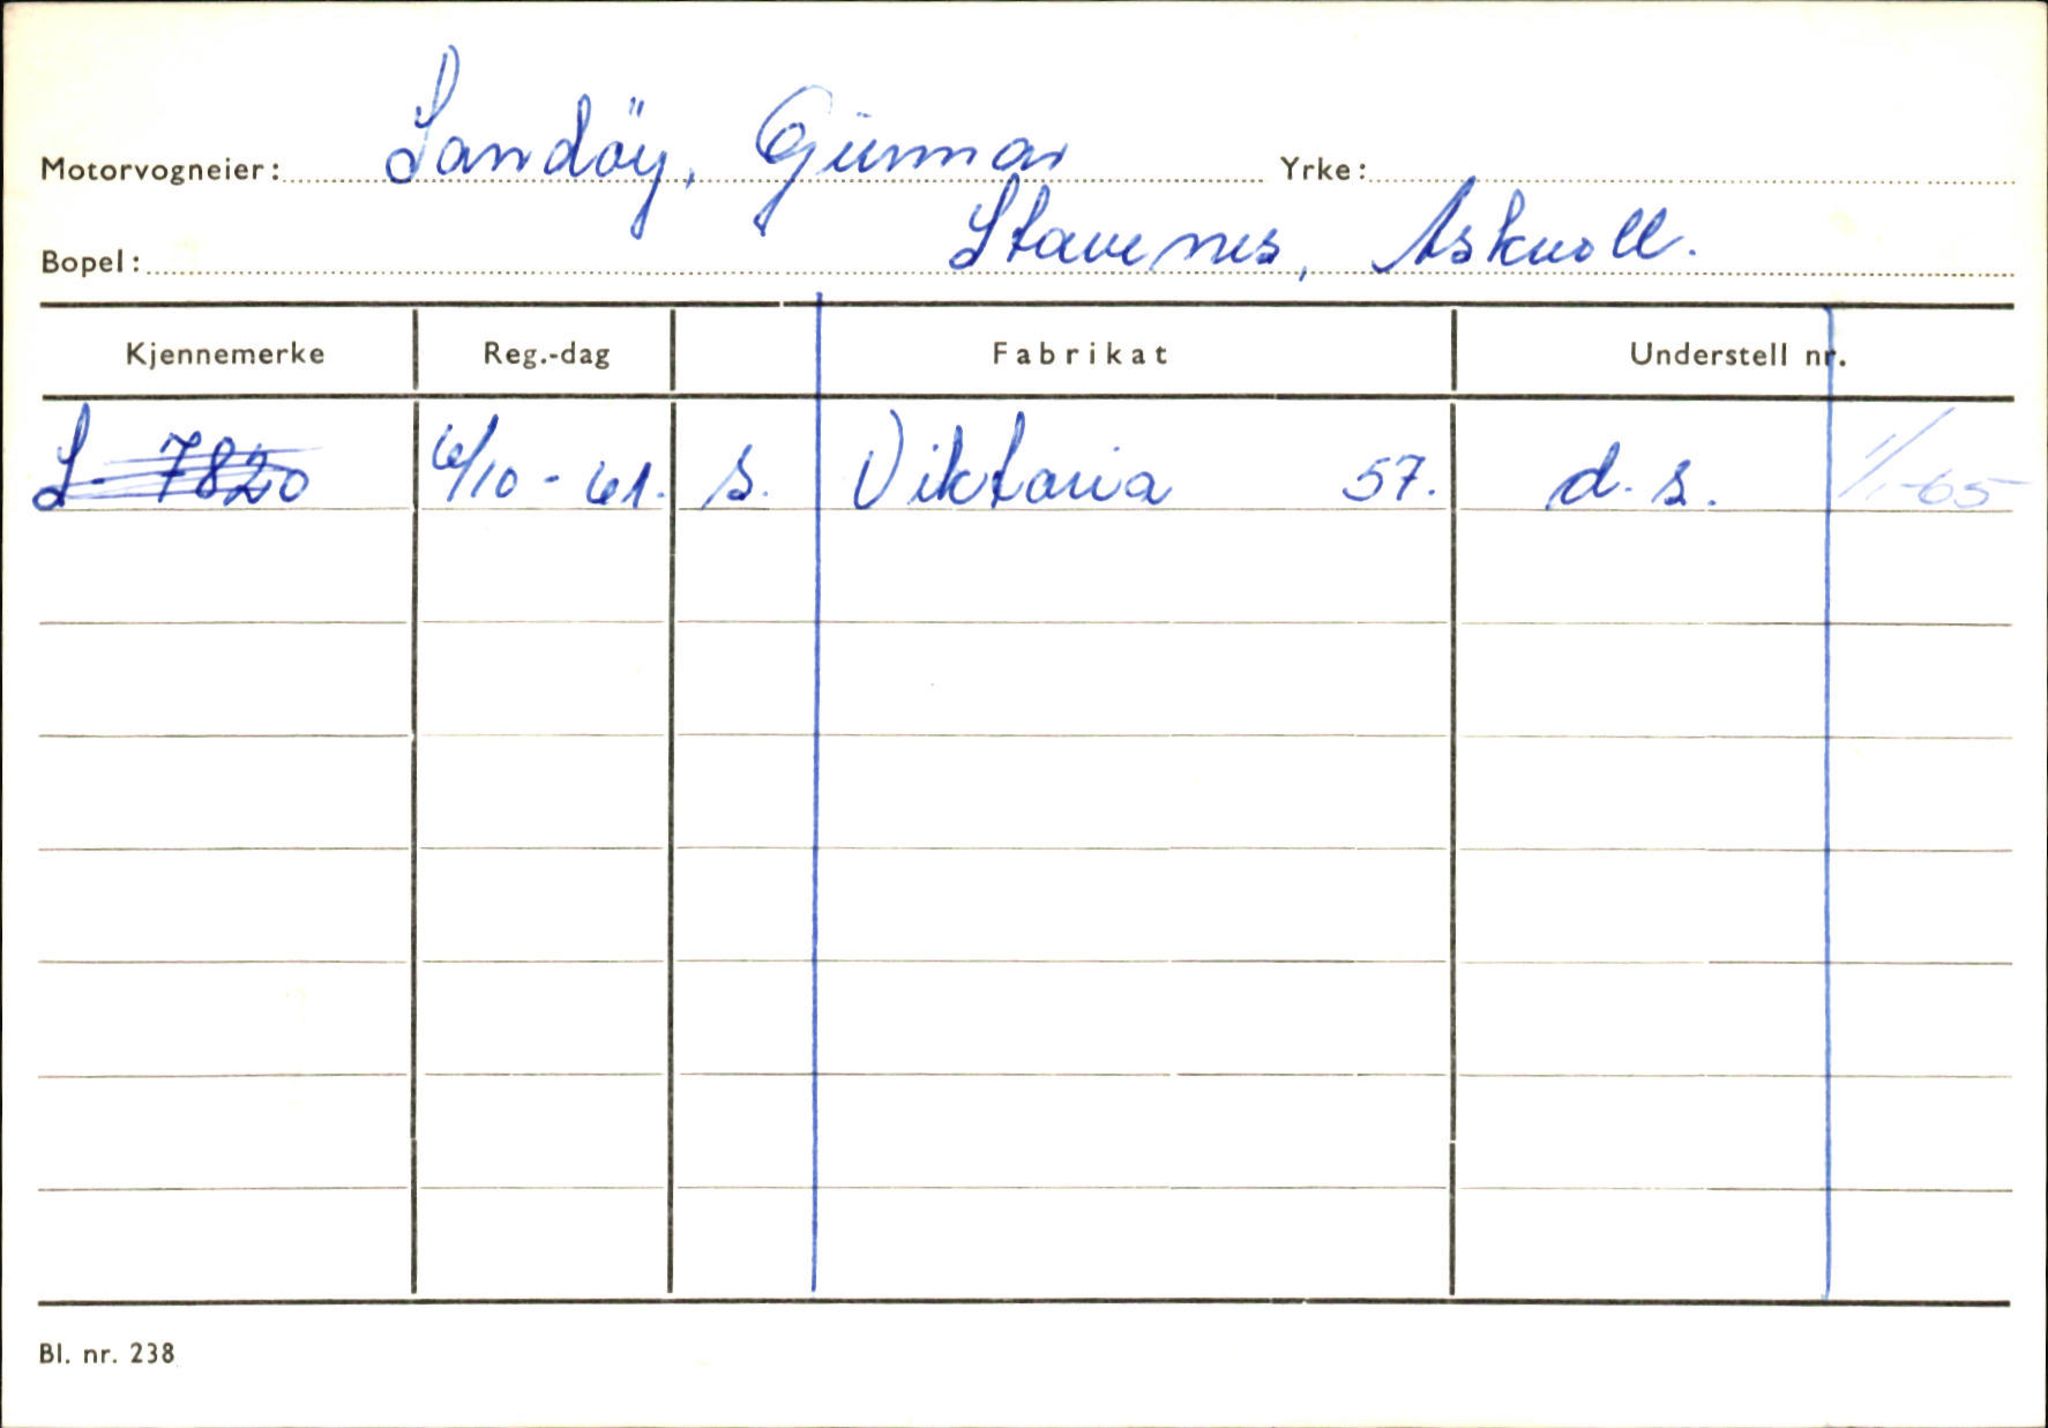 Motorvogneier: Sandöy, Gunnar Yrke:
Bopel: Stavenes, Askvoll.
Kjennemerke Reg.-dag Fabrikat Understell nr.
S-7820 6/10-61. s. Viktoria 57. d.s. 1/1-65
Bl. nr. 238